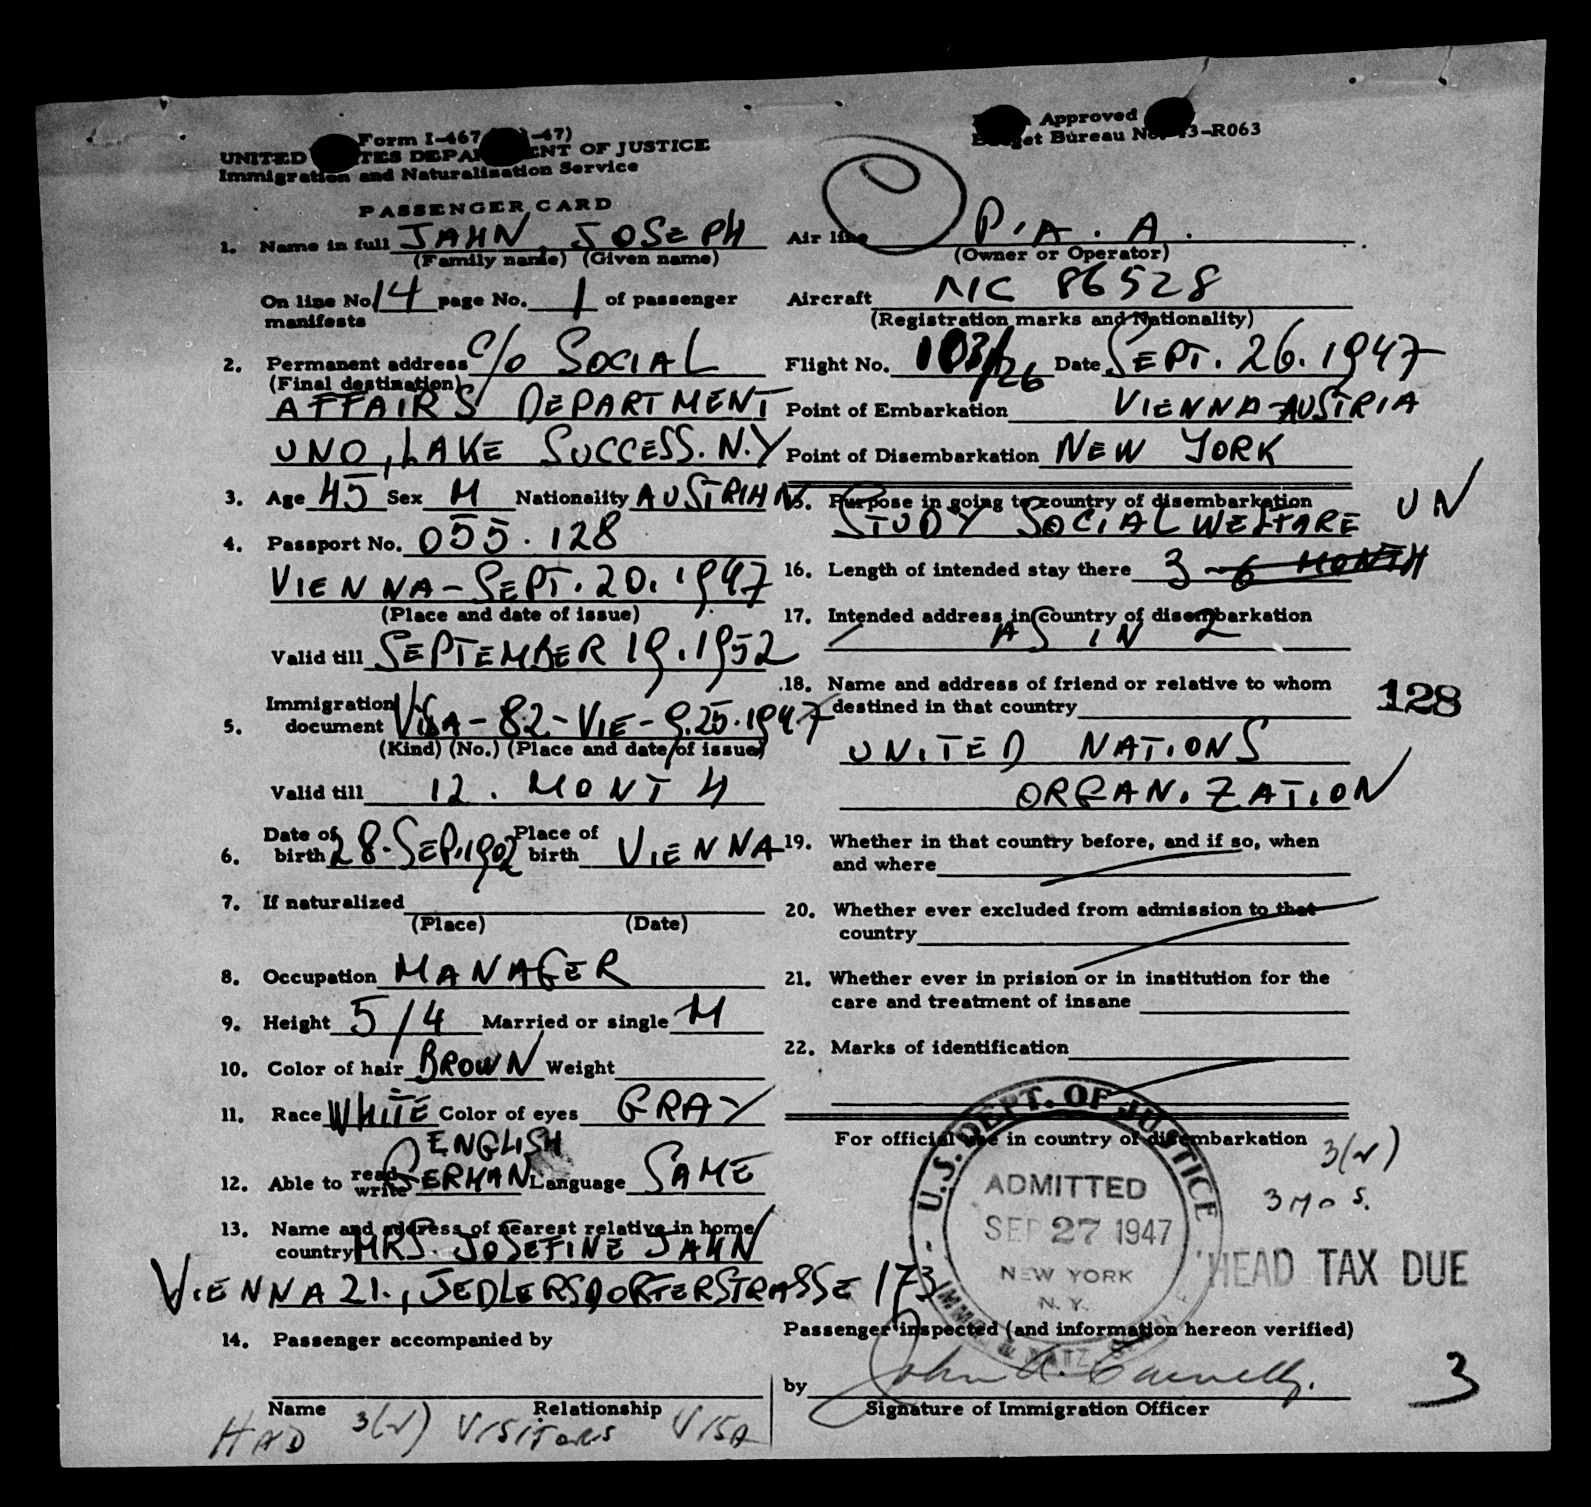 Form I-467 -47)
UNITED TES DEPA ENT OF JUSTICE
Immigration and Naturalization Service
PASSENGER CARD
1. Name in full JAHN, JOSEPH
(Family name) (Given name)
On line No. 14 page No. 1 of passenger
manifests
2. Permanent address c/o SOCIAL
(Final destination)
AFFAIRS DEPARTMENT
UNO, LAKE SUCCESS. N.Y
3. Age 45 Sex M Nationality AUSTRIAN
4. Passport No. 055.128
VIENNA - SEPT. 20. 1947
(Place and date of issue)
Valid till SEPTEMBER 19. 1952
Immigration
5. document VISA - 82 - VIE - 9.25.1947
(Kind) (No.) (Place and date of issue)
Valid till 12. MONTH
6. Date of birth 28. SEP. 1902 Place of birth VIENNA
7. If naturalized
(Place) (Date)
8. Occupation MANAGER
9. Height 5/4 Married or single M
10. Color of hair BROWN Weight
11. Race WHITE Color of eyes GRAY
ENGLISH
12. Able to read write GERMAN Language SAME
13. Name and address of nearest relative in home
country MRS. JOSEFINE JAHN
VIENNA 21., JEDLERSDORFERSTRASSE 173
14. Passenger accompanied by
Name Relationship
HAD 3(2) VISITORS VISA
Approved
get Bureau No. 3-R063
Air line P.A.A.
(Owner or Operator)
Aircraft NC 86528
(Registration marks and Nationality)
Flight No. 103/26 Date SEPT. 26. 1947
Point of Embarkation VIENNA-AUSTRIA
Point of Disembarkation NEW YORK
15. Purpose in going to country of disembarkation
STUDY SOCIAL WELFARE UN
16. Length of intended stay there 3 - 6 MONTH
17. Intended address in country of disembarkation
AS IN 2
18. Name and address of friend or relative to whom
destined in that country
128
UNITED NATIONS
ORGANIZATION
19. Whether in that country before, and if so, when
and where
20. Whether ever excluded from admission to that
country
21. Whether ever in prision or in institution for the
care and treatment of insane
22. Marks of identification
For official use in country of disembarkation
3(2)
3 MOS.
U.S. DEPT. OF JUSTICE
ADMITTED
SEP 27 1947
NEW YORK
N.Y.
IMMG. & NATZ.
HEAD TAX DUE
Passenger inspected (and information hereon verified)
by John
Signature of Immigration Officer
3